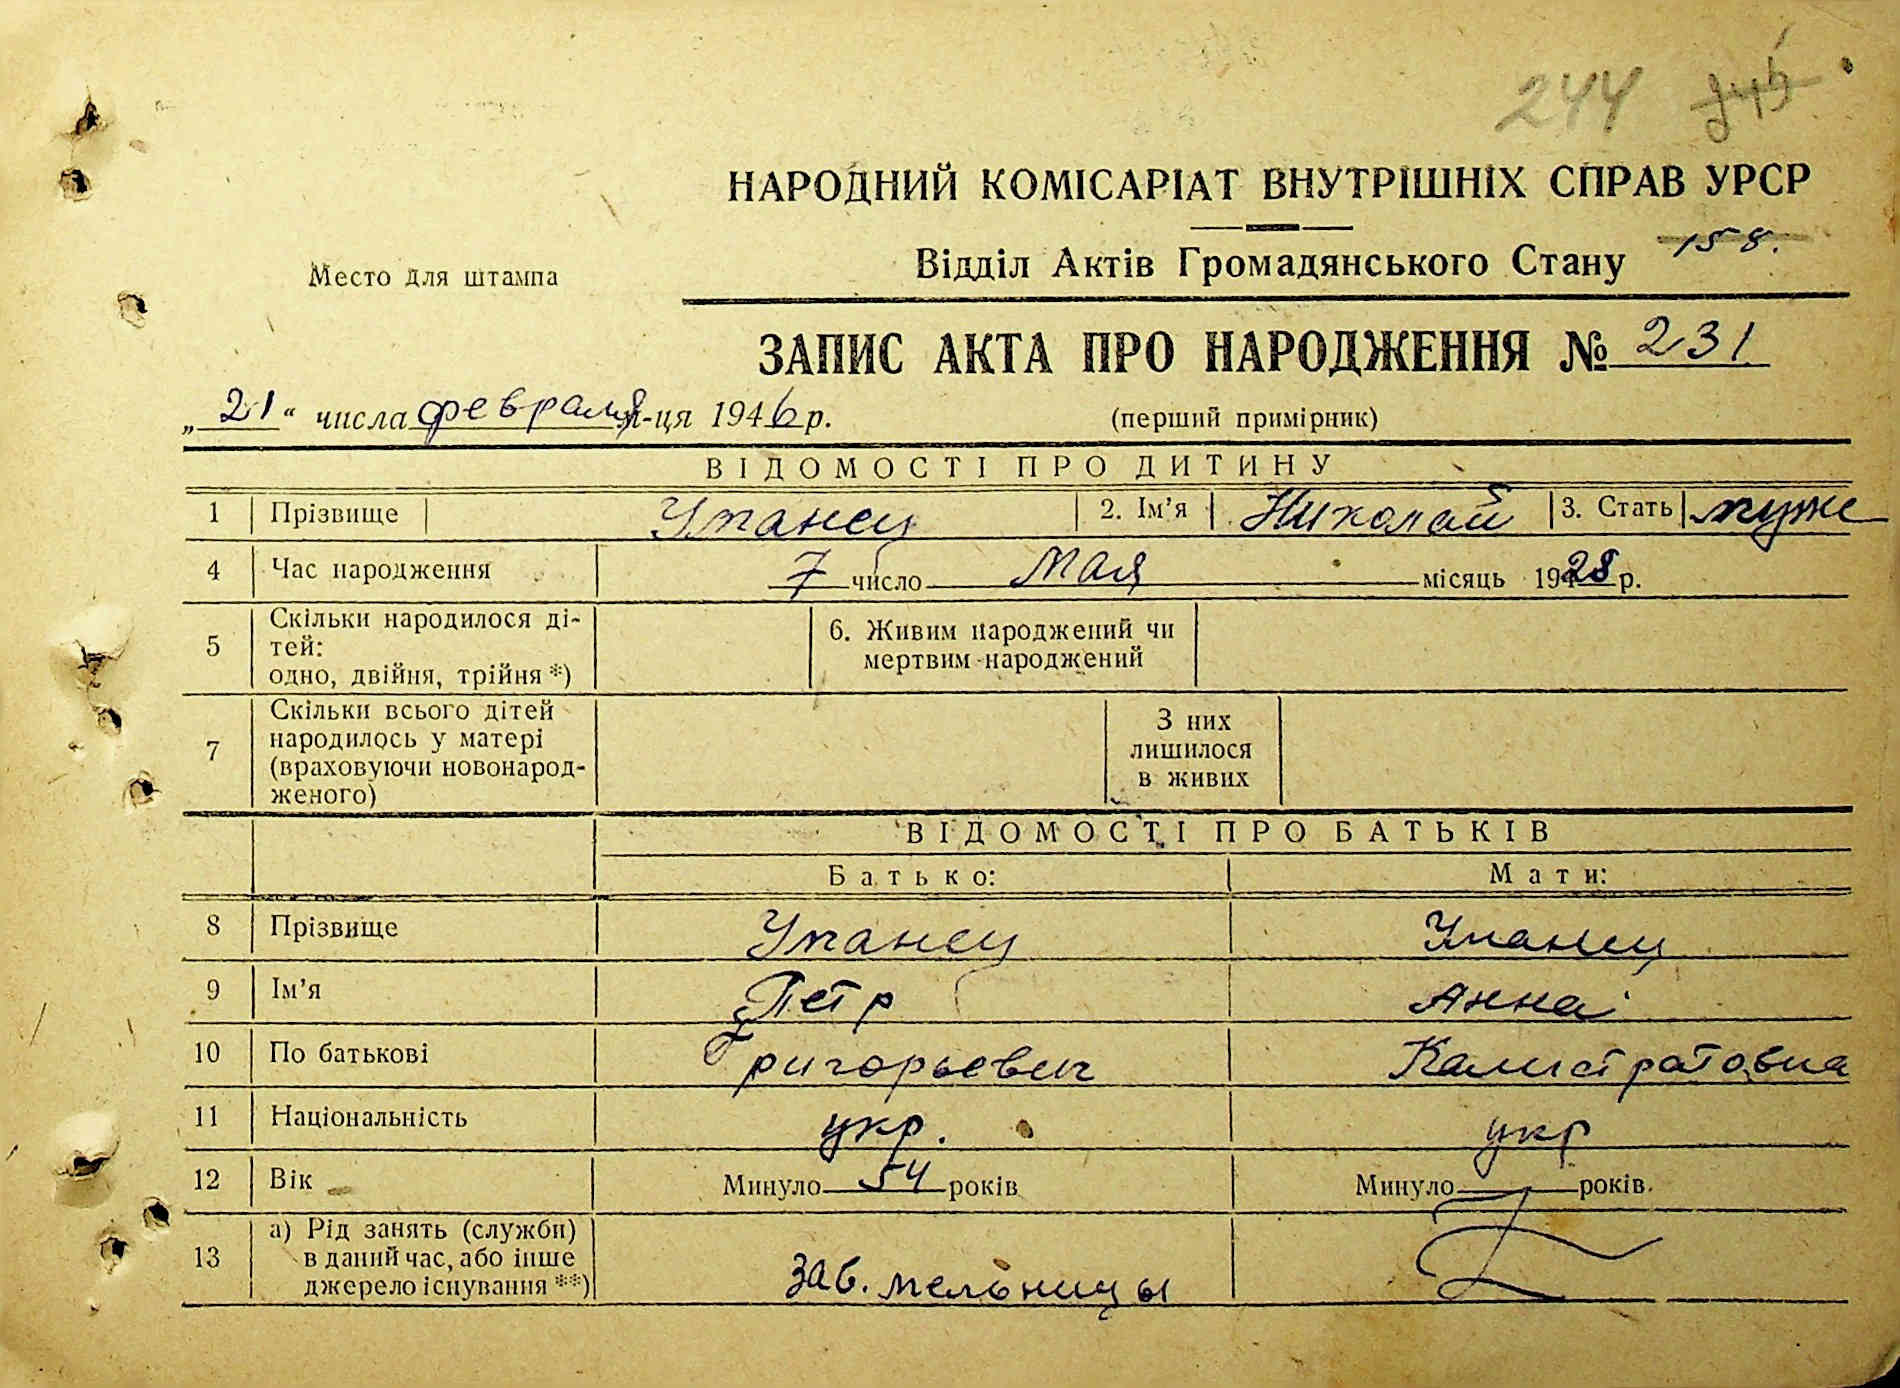 244 245
НАРОДНИЙ КОМІСАРІАТ ВНУТРІШНІХ СПРАВ УРСР
Место для штампа
Відділ Актів Громадянського Стану 158.
ЗАПИС АКТА ПРО НАРОДЖЕННЯ № 231
„21“ числа февраля м-ця 1946 р. (перший примірник)
ВІДОМОСТІ ПРО ДИТИНУ
1 Прізвище Уманец 2. Ім’я Николай 3. Стать муже
4 Час народження 7 число мая місяць 1928 р.
5 Скільки народилося ді-
тей:
одно, двійня, трійня *)
6. Живим народжений чи
мертвим народжений
7 Скільки всього дітей
народилось у матері
(враховуючи новонарод-
женого)
З них
лишилося
в живих
ВІДОМОСТІ ПРО БАТЬКІВ
Батько: Мати:
8 Прізвище Уманец Уманец
9 Ім’я Петр Анна
10 По батькові Григорьевич Калистратовна
11 Національність укр. укр
12 Вік Минуло 54 років Минуло років.
13 а) Рід занять (служби)
в даний час, або інше
джерело існування **)
Зав. мельницы